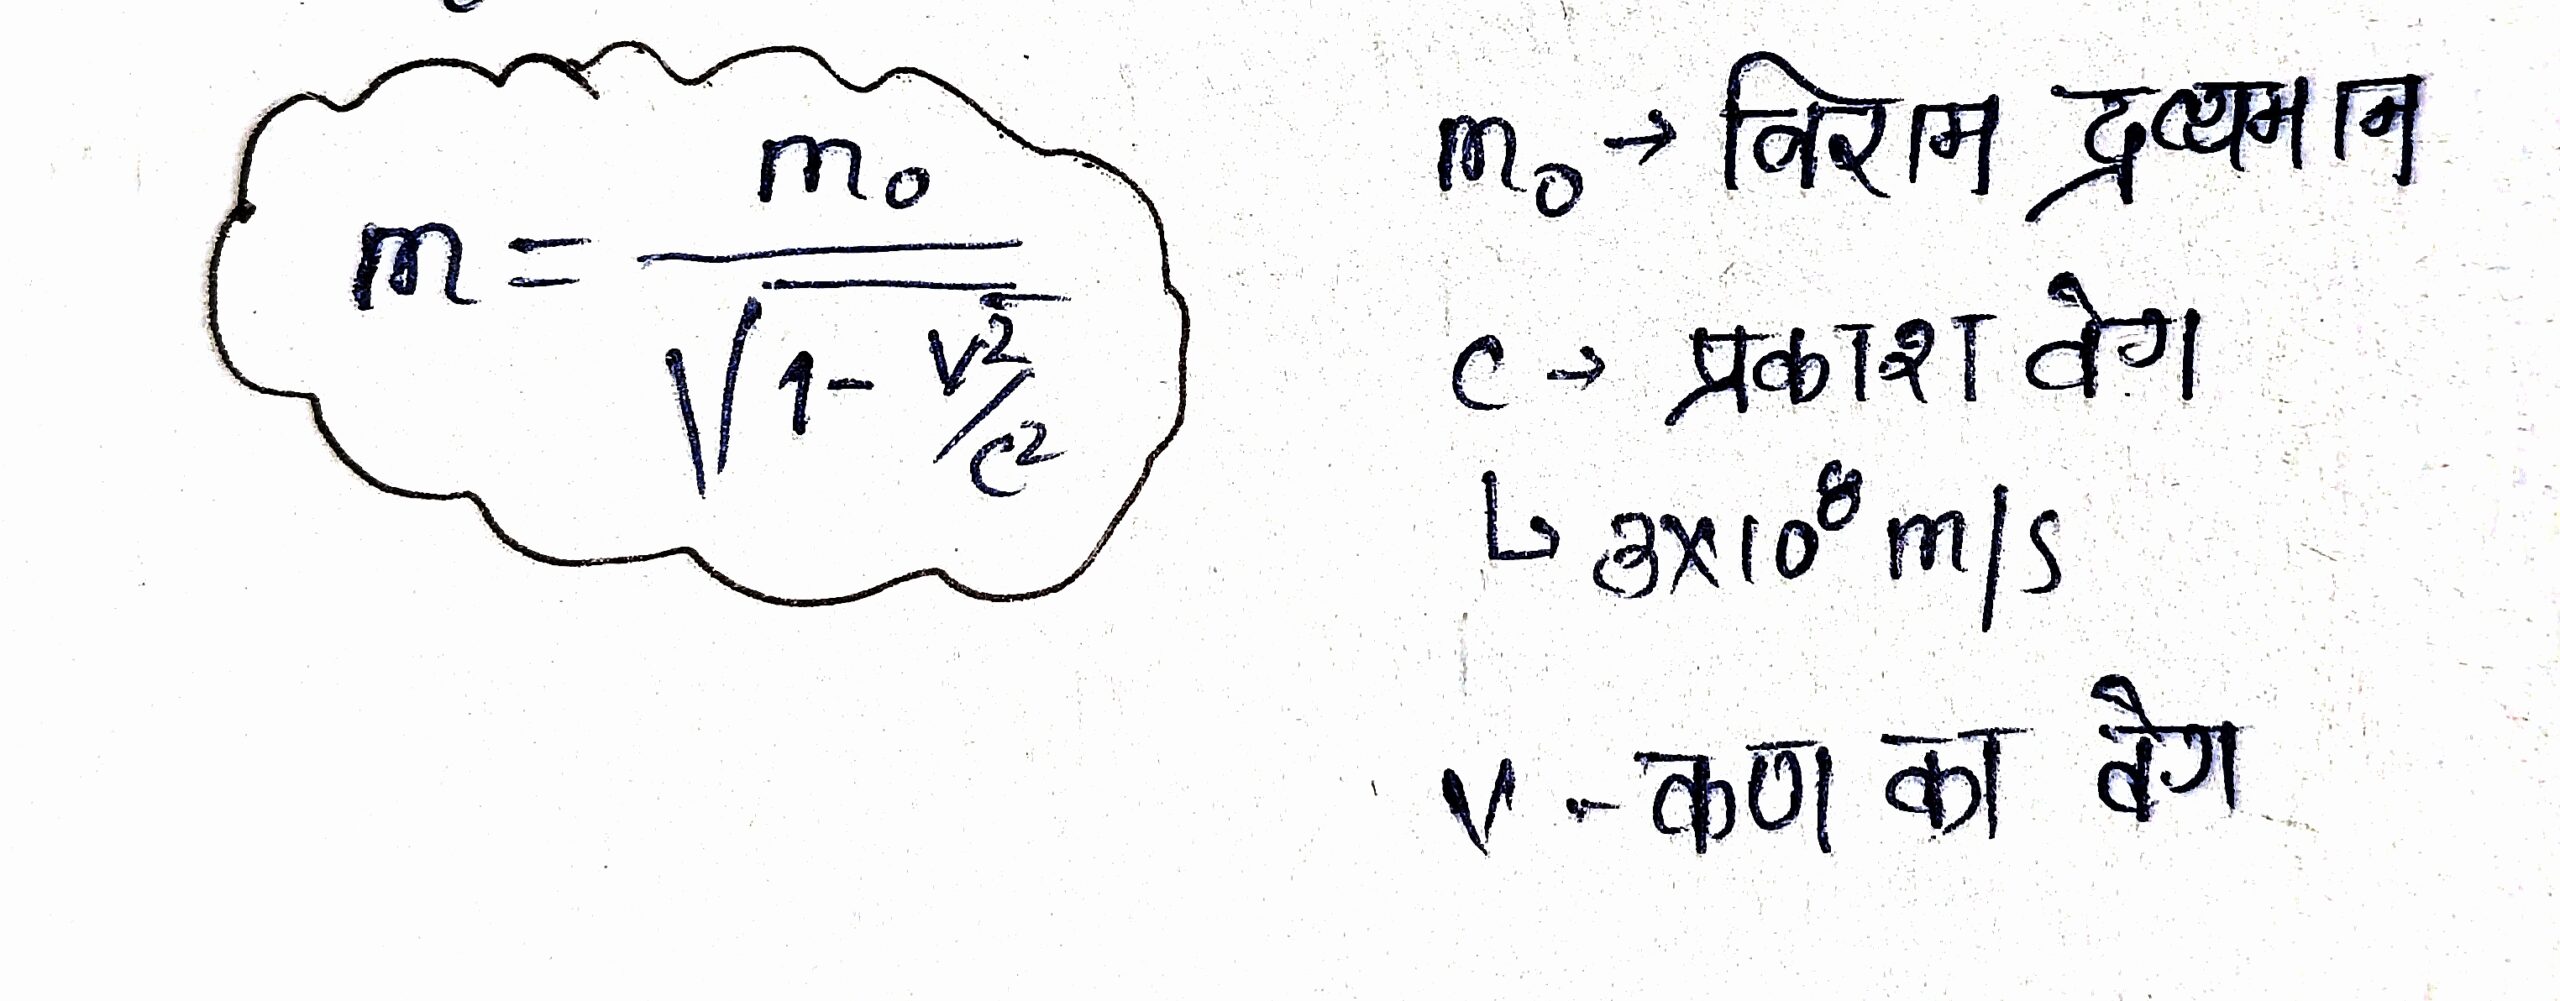 m = m₀ / √(1 - v²/c²)
m₀ → विराम द्रव्यमान
c → प्रकाश वेग
↳ 3×10⁸ m/s
v - कण का वेग